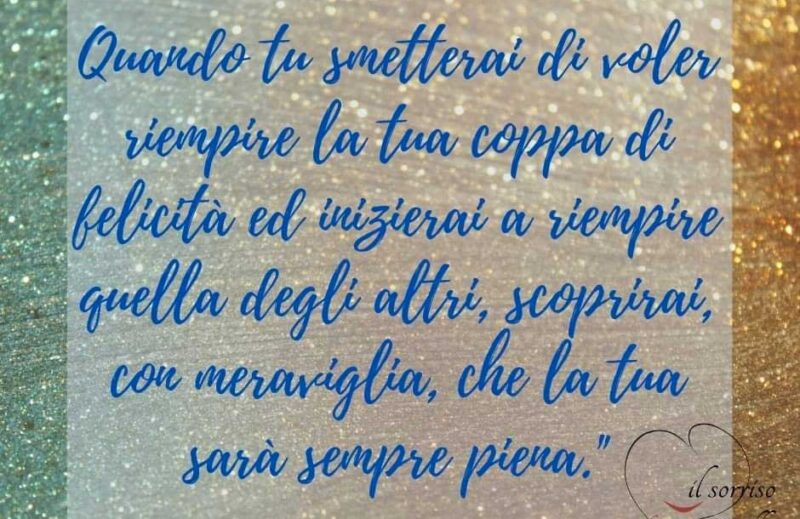 Quando tu smetterai di voler
riempire la tua coppa di
felicità ed inizierai a riempire
quella degli altri, scoprirai,
con meraviglia, che la tua
sarà sempre piena."
il sorriso